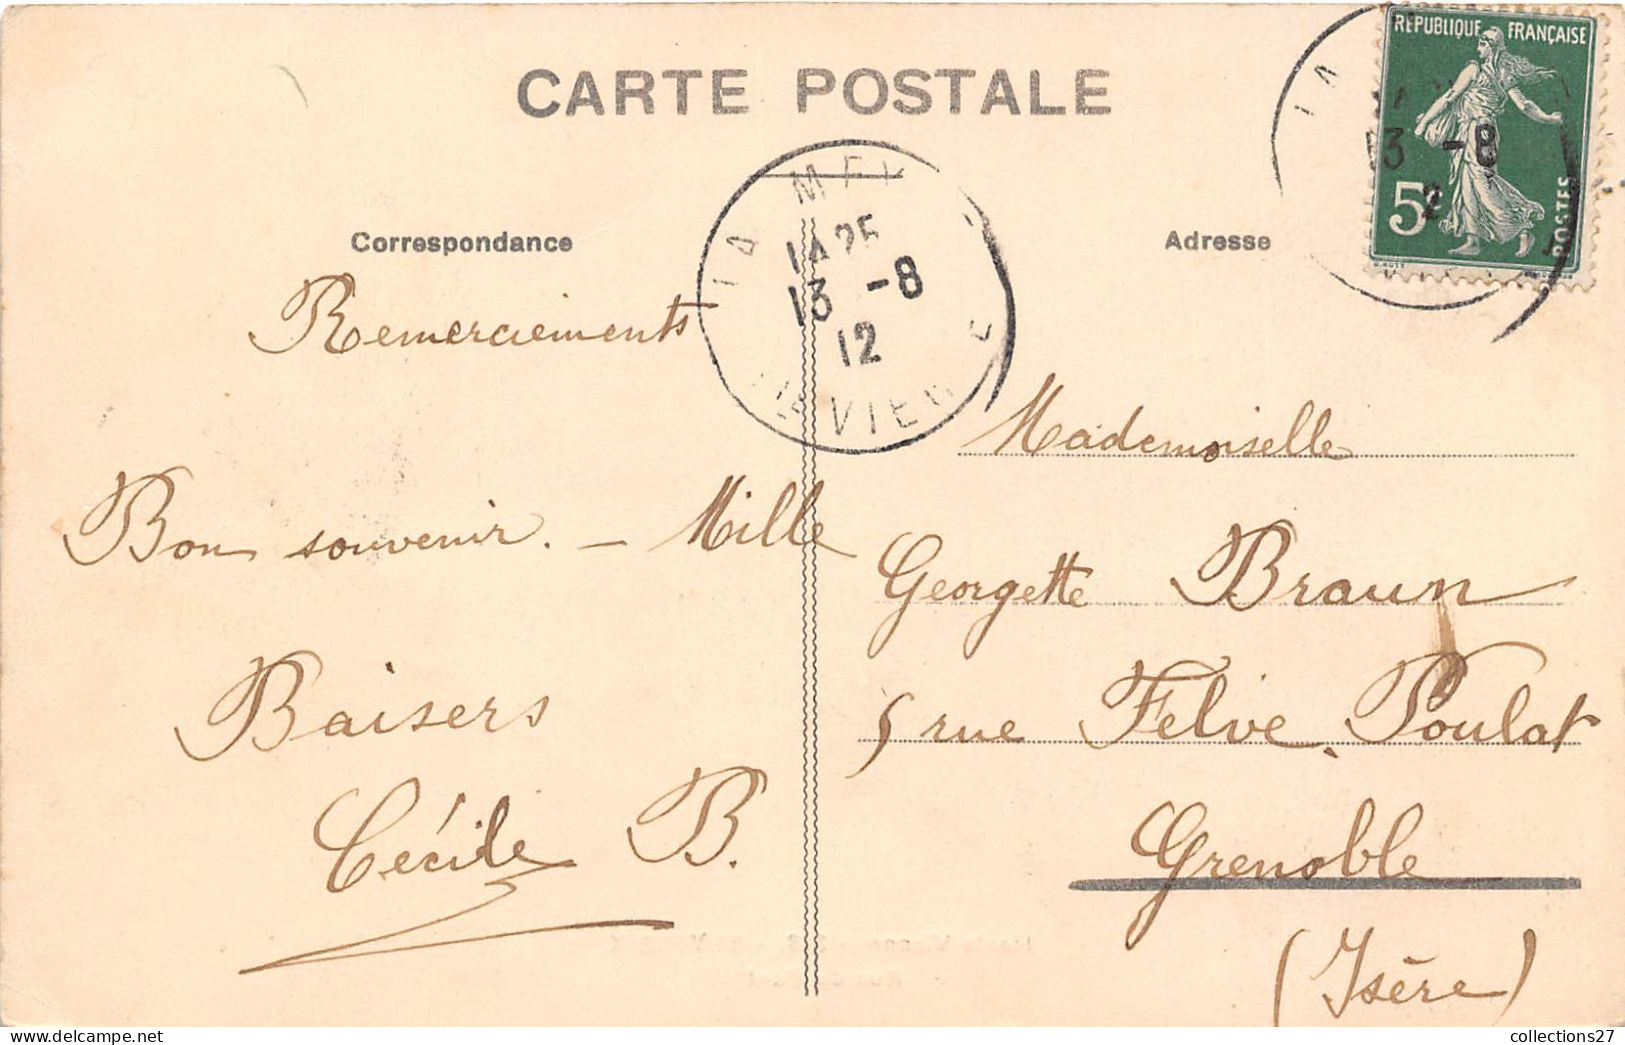 CARTE POSTALE
RÉPUBLIQUE FRANÇAISE
5c
POSTES
13 -8
2
LA
14 25
13 -8
12
Correspondance
Adresse
Remerciements
Bon souvenir. – Mille
Baisers
Cécile B.
Mademoiselle
Georgette Braun
5 rue Felve. Poulat
Grenoble
(Isère)
collections27